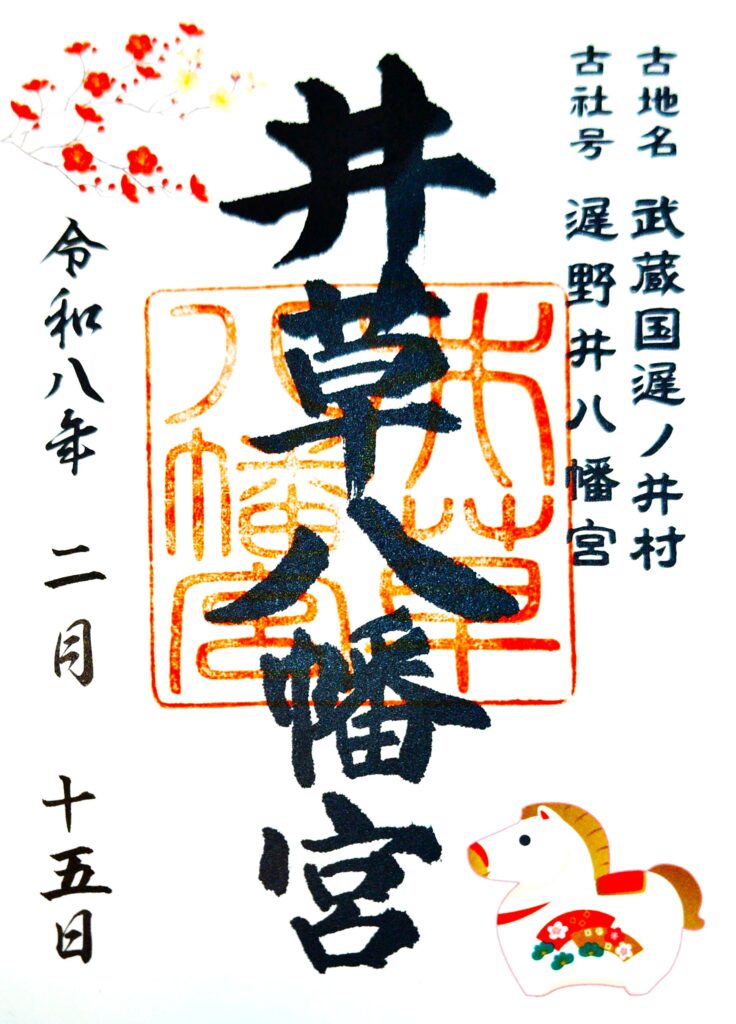 古地名 武蔵国遅ノ井村
古社号 遅野井八幡宮
井草八幡宮
井草
八幡宮
令和八年 二月 十五日